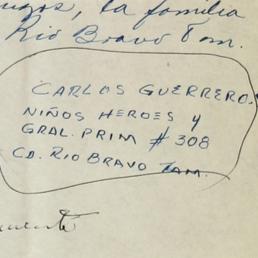 la familia
Rio Bravo Tam.
CARLOS GUERRERO.
NIÑOS HEROES y
GRAL. PRIM # 308
CD. RIO BRAVO TAM.